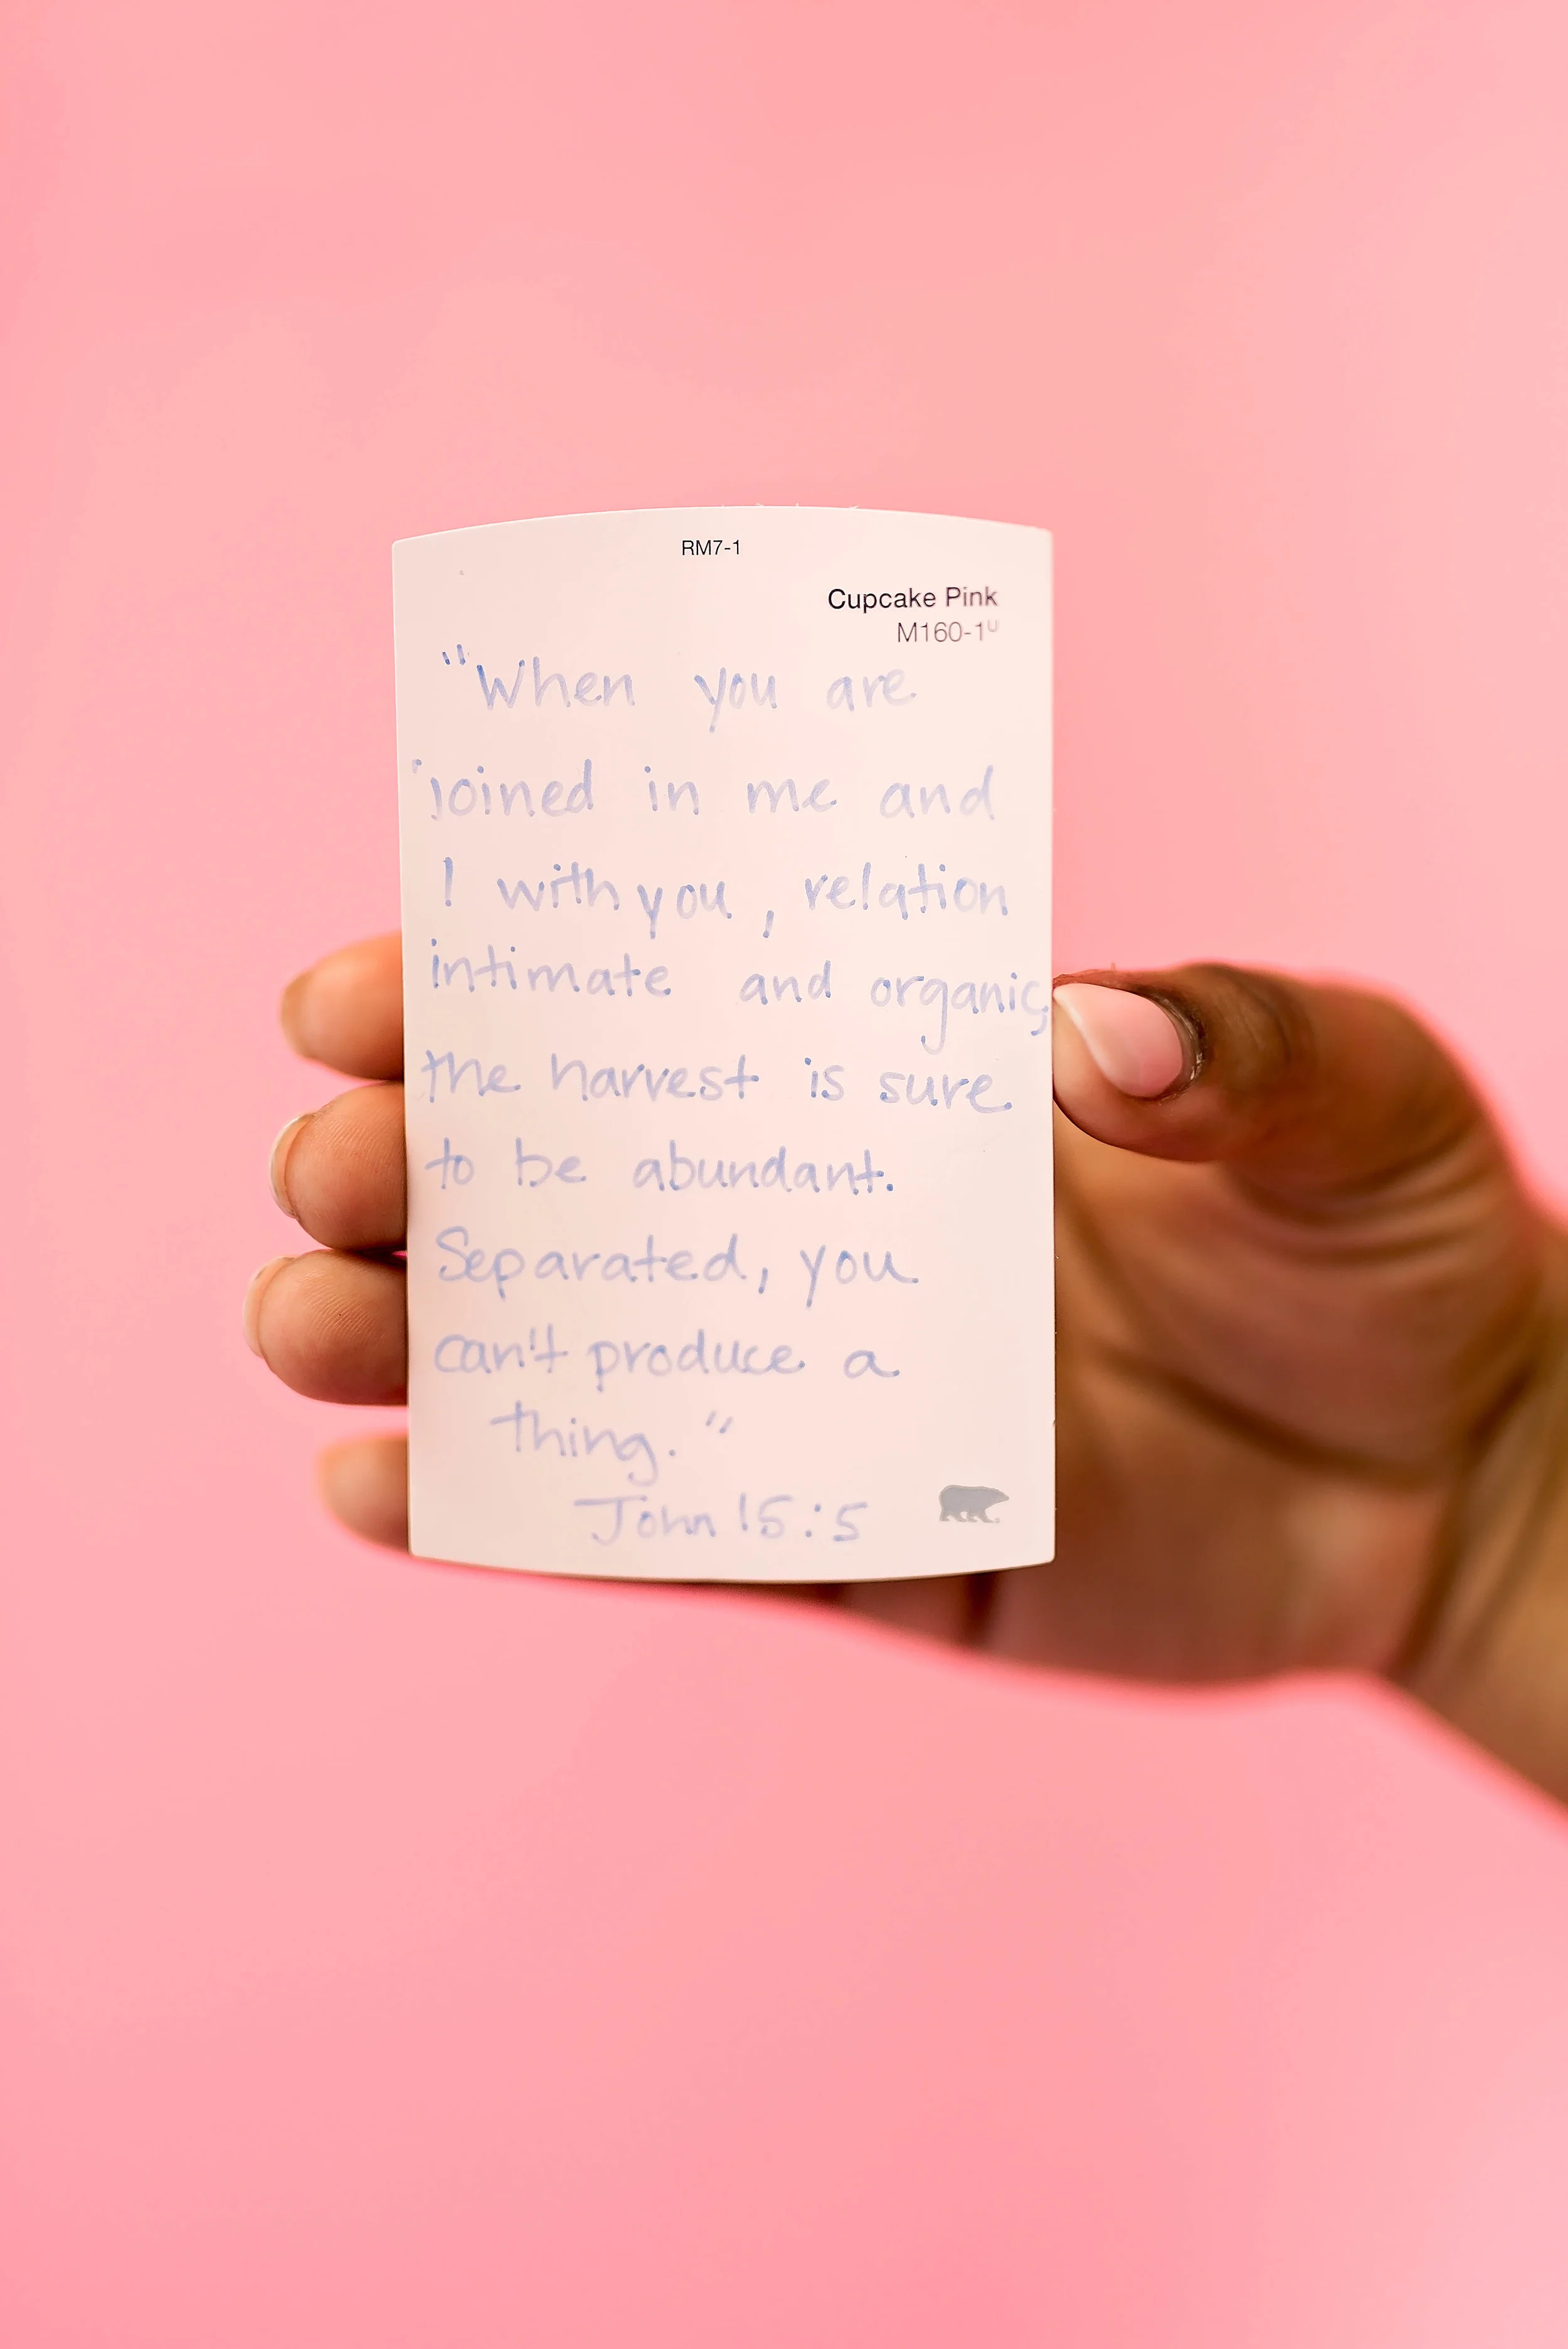 RM7-1
Cupcake Pink
M160-1U
"When you are
joined in me and
I with you, relation
intimate and organic,
the harvest is sure
to be abundant.
Separated, you
can't produce a
thing."
John 15:5